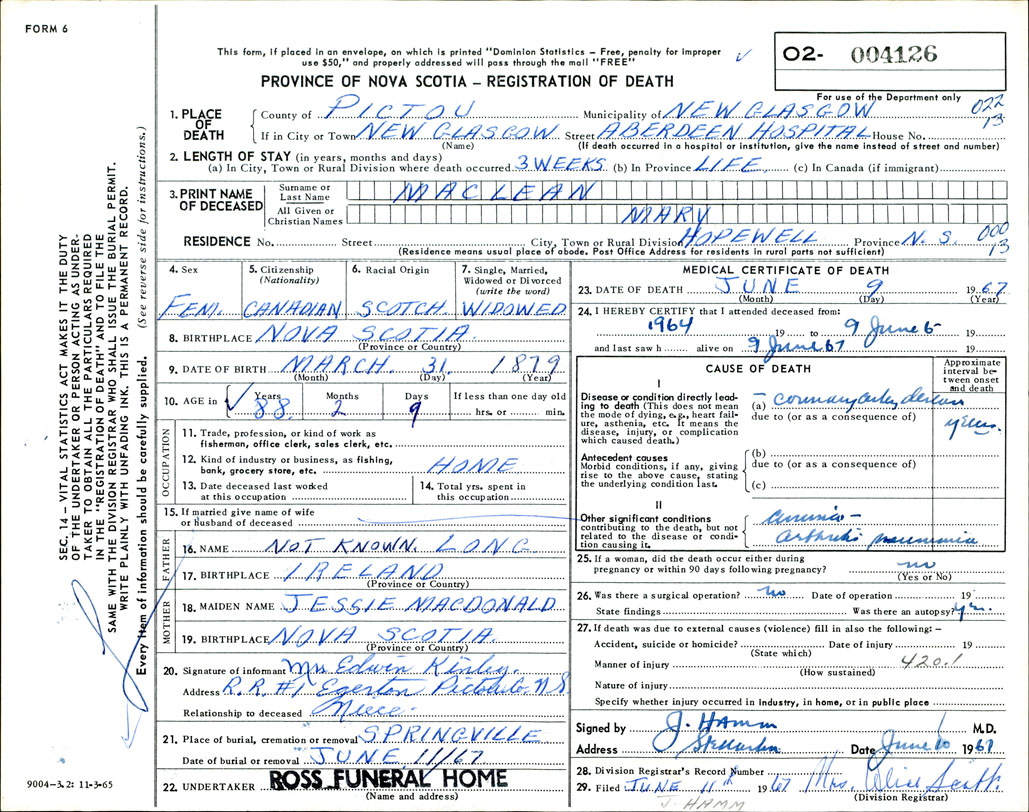 FORM 6
This form, if placed in an envelope, on which is printed "Dominion Statistics – Free, penalty for improper
use $50," and properly addressed will pass through the mail "FREE"
O2- 004126
PROVINCE OF NOVA SCOTIA – REGISTRATION OF DEATH
For use of the Department only
022
13
1. PLACE OF DEATH
County of PICTOU Municipality of NEW GLASGOW
If in City or Town NEW GLASGOW Street ABERDEEN HOSPITAL House No.
(Name) (If death occurred in a hospital or institution, give the name instead of street and number)
2. LENGTH OF STAY (in years, months and days)
(a) In City, Town or Rural Division where death occurred 3 WEEKS (b) In Province LIFE (c) In Canada (if immigrant)
3. PRINT NAME OF DECEASED
Surname or Last Name MACLEAN
All Given or Christian Names MARY
RESIDENCE No. Street City, Town or Rural Division HOPEWELL Province N. S.
000
13
(Residence means usual place of abode. Post Office Address for residents in rural parts not sufficient)
4. Sex
FEM.
5. Citizenship
(Nationality)
CANADIAN
6. Racial Origin
SCOTCH
7. Single, Married,
Widowed or Divorced
(write the word)
WIDOWED
8. BIRTHPLACE NOVA SCOTIA
(Province or Country)
9. DATE OF BIRTH MARCH. 31. 1879
(Month) (Day) (Year)
10. AGE in Years Months Days If less than one day old
88. 2 9 hrs. or min.
OCCUPATION
11. Trade, profession, or kind of work as
fisherman, office clerk, sales clerk, etc.
12. Kind of industry or business, as fishing,
bank, grocery store, etc. HOME
13. Date deceased last worked
at this occupation
14. Total yrs. spent in
this occupation
15. If married give name of wife
or husband of deceased
FATHER
16. NAME NOT KNOWN. LONG
17. BIRTHPLACE IRELAND
(Province or Country)
MOTHER
18. MAIDEN NAME JESSIE MACDONALD
19. BIRTHPLACE NOVA SCOTIA.
(Province or Country)
20. Signature of informant Mrs Edwin
Address R.R.#1 Egerton Pictou Co. N S
Relationship to deceased Niece.
21. Place of burial, cremation or removal SPRINGVILLE
Date of burial or removal JUNE 11/67
22. UNDERTAKER ROSS FUNERAL HOME
(Name and address)
MEDICAL CERTIFICATE OF DEATH
23. DATE OF DEATH JUNE 9 1967
(Month) (Day) (Year)
24. I HEREBY CERTIFY that I attended deceased from:
1964 19 to 9 June 6 19
and last saw h alive on 9 June 67 19
CAUSE OF DEATH
Approximate
interval be-
tween onset
and death
I
Disease or condition directly lead-
ing to death (This does not mean
the mode of dying, e.g., heart fail-
ure, asthenia, etc. It means the
disease, injury, or complication
which caused death.)
(a) coronary artery disease
due to (or as a consequence of)
years.
Antecedent causes
Morbid conditions, if any, giving
rise to the above cause, stating
the underlying condition last.
(b)
due to (or as a consequence of)
(c)
II
Other significant conditions
contributing to the death, but not
related to the disease or condi-
tion causing it.
arthritis pneumonia
25. If a woman, did the death occur either during
pregnancy or within 90 days following pregnancy? no
(Yes or No)
26. Was there a surgical operation? no Date of operation 19
State findings Was there an autopsy? yes.
27. If death was due to external causes (violence) fill in also the following: –
Accident, suicide or homicide? Date of injury 19
(State which)
Manner of injury 420.1
(How sustained)
Nature of injury
Specify whether injury occurred in industry, in home, or in public place
Signed by J. HAMM M.D.
Address Stellarton Date June 10 1967
28. Division Registrar's Record Number
29. Filed JUNE 11th 1967 Mrs. Alice Scott.
(Division Registrar)
J. HAMM
SEC. 14 – VITAL STATISTICS ACT MAKES IT THE DUTY
OF THE UNDERTAKER OR PERSON ACTING AS UNDER-
TAKER TO OBTAIN ALL THE PARTICULARS REQUIRED
IN THE "REGISTRATION OF DEATH" AND TO FILE THE
SAME WITH THE DIVISION REGISTRAR WHO SHALL ISSUE THE BURIAL PERMIT.
WRITE PLAINLY WITH UNFADING INK. THIS IS A PERMANENT RECORD.
Every item of information should be carefully supplied. (See reverse side for instructions.)
9004-3.2: 11-3-65